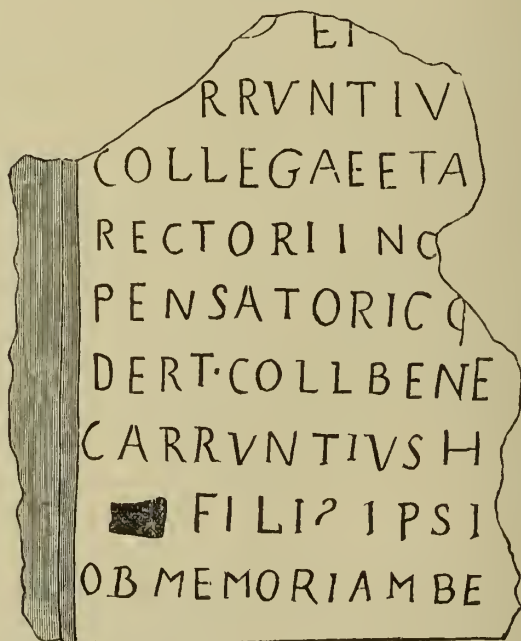 EI
RRVNTIV
COLLEGAEETA
RECTORIINC
PENSATORICC
DERT·COLLBENE
CARRVNTIVSH
FILI? IPSI
OBMEMORIAMBE